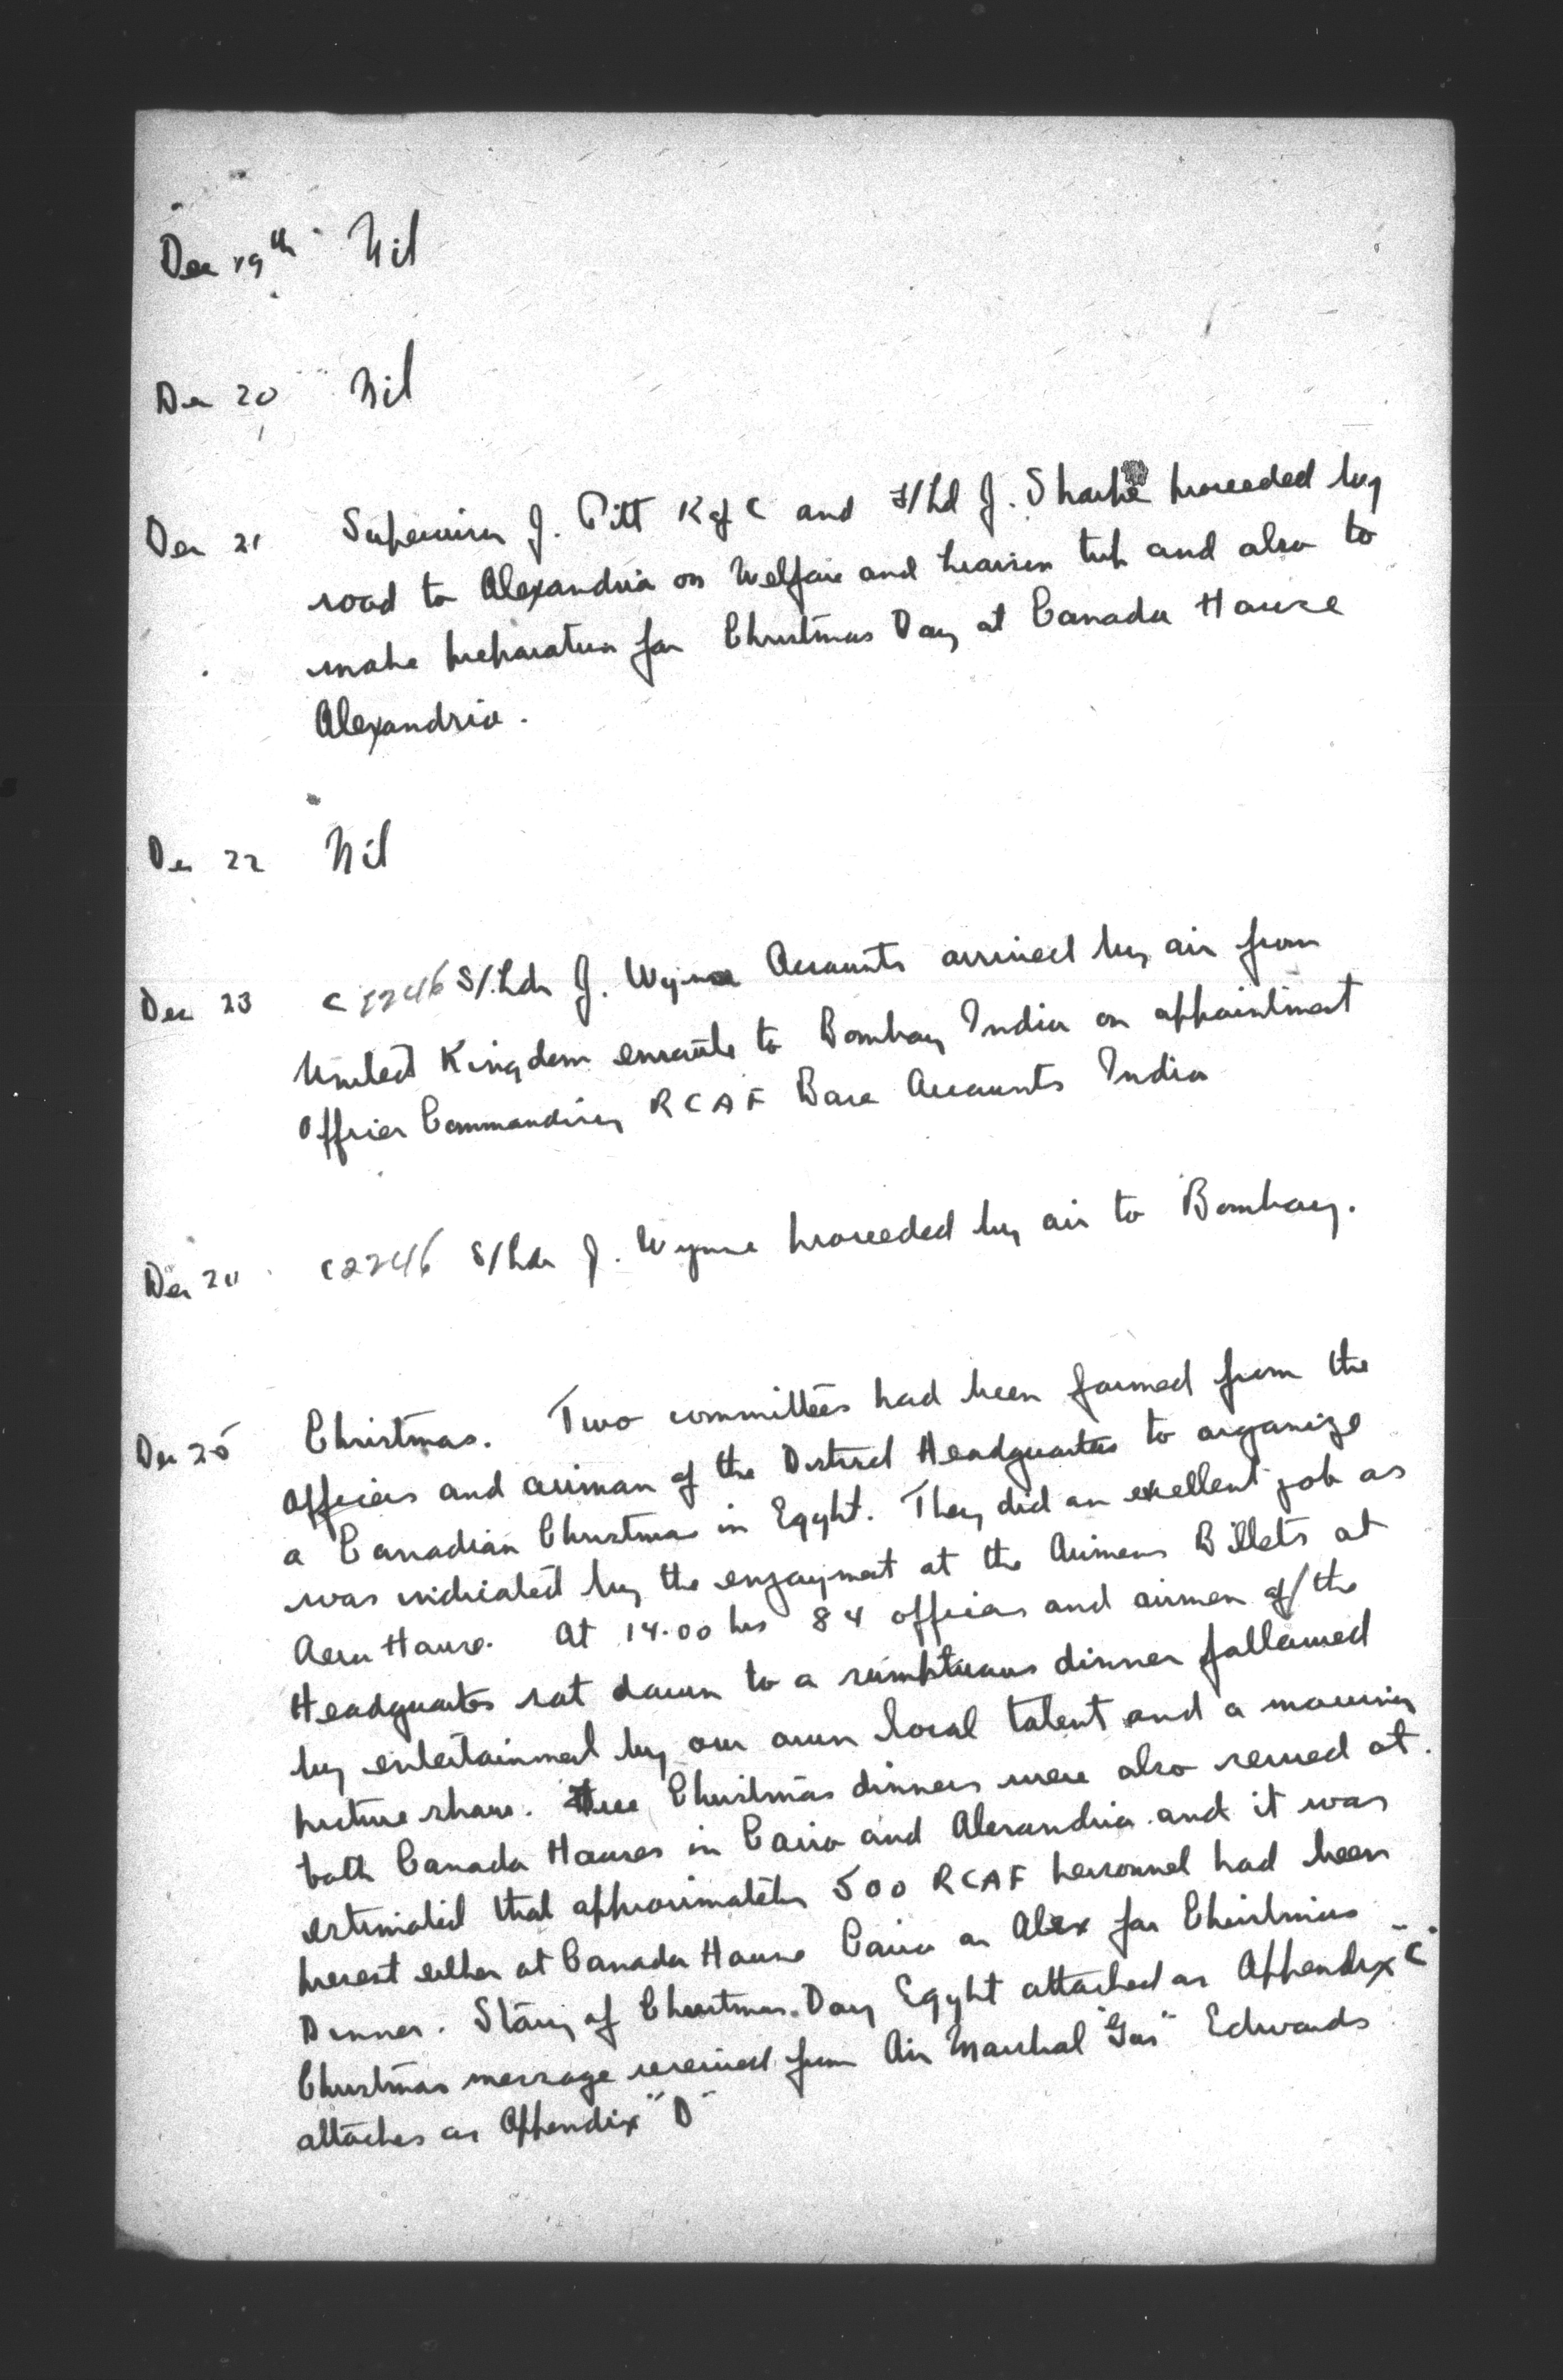 Dec 19th Nil
Dec 20 Nil
Dec 21 Supervisor J. Pitt K of C and F/Lt J. Sharpe proceeded by
road to Alexandria on Welfare and liaison trip and also to
make preparation for Christmas Day at Canada House
Alexandria.
Dec 22 Nil
Dec 23 C2246 S/Ldr J. Wynne Accounts arrived by air from
United Kingdom enroute to Bombay India on appointment
Officer Commanding RCAF Base Accounts India
Dec 24 C2246 S/Ldr J. Wynne proceeded by air to Bombay.
Dec 25 Christmas. Two committees had been formed from the
Officers and airman of the District Headquarters to organize
a Canadian Christmas in Egypt. They did an excellent job as
was indicated by the enjoyment at the Airmens Billets at
House. At 14.00 hrs 84 officers and airmen of the
Headquarters sat down to a sumptuous dinner followed
by entertainment by our own local talent and a moving
picture show. Free Christmas dinners were also served at
both Canada Houses in Cairo and Alexandria and it was
estimated that approximately 500 RCAF personnel had been
present either at Canada House Cairo or Alex for Christmas
Dinner. Story of Christmas Day Egypt attached as Appendix "C"
Christmas message received from Air Marshal "Gus" Edwards
attaches as Appendix "D"